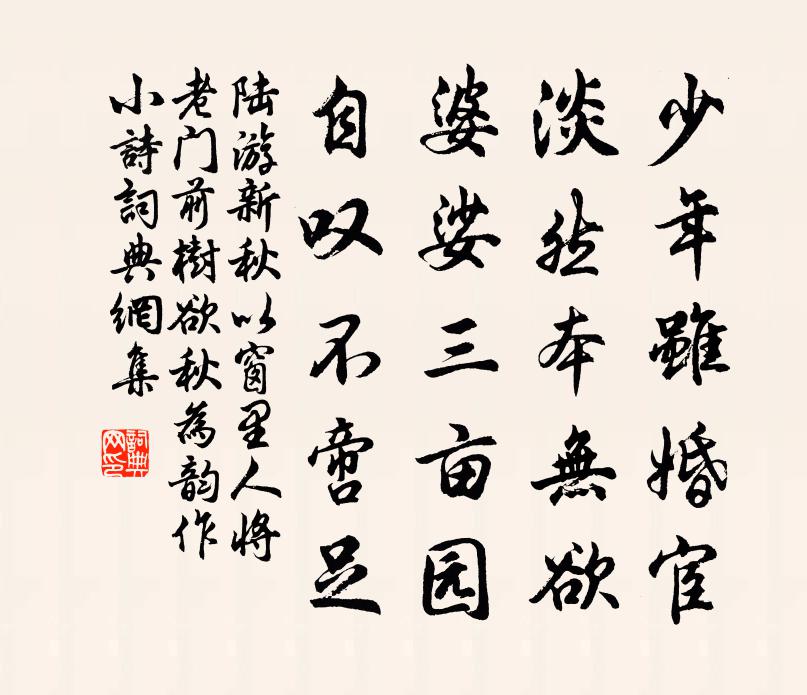 少年雖婚宦
淡然本無欲
婆娑三亩园
自叹不啻足
陆游新秋以窗里人将
老门前樹欲秋為韵作
小詩詞典網集
詞典
网印